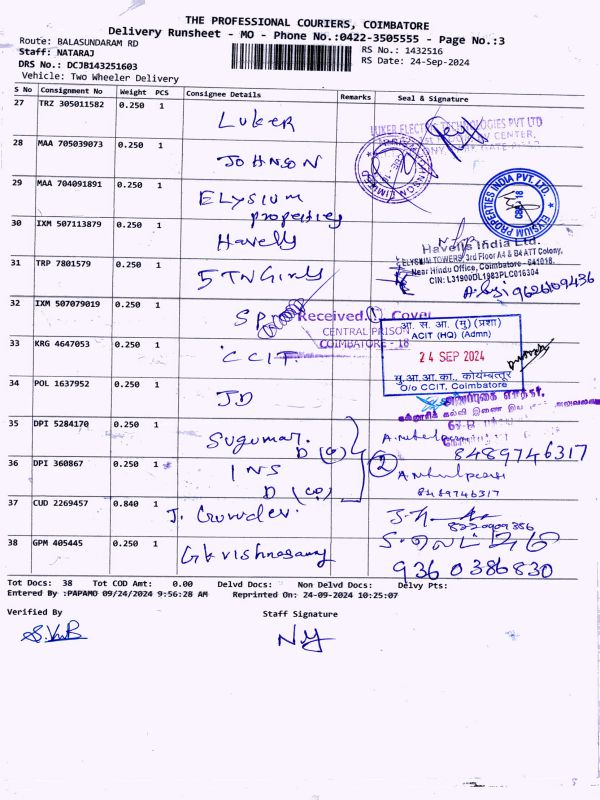 THE PROFESSIONAL COURIERS, COIMBATORE
Delivery Runsheet - MO - Phone No.:0422-3505555 - Page No.:3
Route: BALASUNDARAM RD
RS No.: 1432516
Staff: NATARAJ
RS Date: 24-Sep-2024
DRS No.: DCJB143251603
Vehicle: Two Wheeler Delivery
S No Consignment No Weight PCS Consignee Details Remarks Seal & Signature
27 TRZ 305011582 0.250 1 Luker
LUKER ELECTRIC TECHNOLOGIES PVT LTD
28 MAA 705039073 0.250 1 JOHNSON
29 MAA 704091891 0.250 1 Elysium
properties
ELYSIUM PROPERTIES INDIA PVT. LTD
CBE - 18
30 IXM 507113879 0.250 1 Havells
Havells India Ltd.
ELYSIUM TOWERS, 3rd Floor A4 & B4 ATT Colony,
Near Hindu Office, Coimbatore - 641018.
CIN: L31900DL1983PLC016304
31 TRP 7801579 0.250 1 5 TN Girls
9626109436
32 IXM 507079019 0.250 1 SP
Received 1 Cover
CENTRAL PRISON
COIMBATORE - 18
आ. स. आ. (मु) (प्रशा)
ACIT (HQ) (Admn)
33 KRG 4647053 0.250 1 CCIT
24 SEP 2024
मु.आ.आ.का., कोयम्बत्तूर
O/o CCIT, Coimbatore
34 POL 1637952 0.250 1 JD
35 DPI 5284170 0.250 1 Sugumar.
D (0)
8489746317
36 DPI 360867 0.250 1 INS
D (co)
2
8489746317
37 CUD 2269457 0.840 1 J. Gowdev.
8220909356
38 GPM 405445 0.250 1 Gkvishnasamy
9360386830
Tot Docs: 38 Tot COD Amt: 0.00 Delvd Docs: Non Delvd Docs: Delvy Pts:
Entered By :PAPAMO 09/24/2024 9:56:28 AM Reprinted On: 24-09-2024 10:25:07
Verified By
Staff Signature